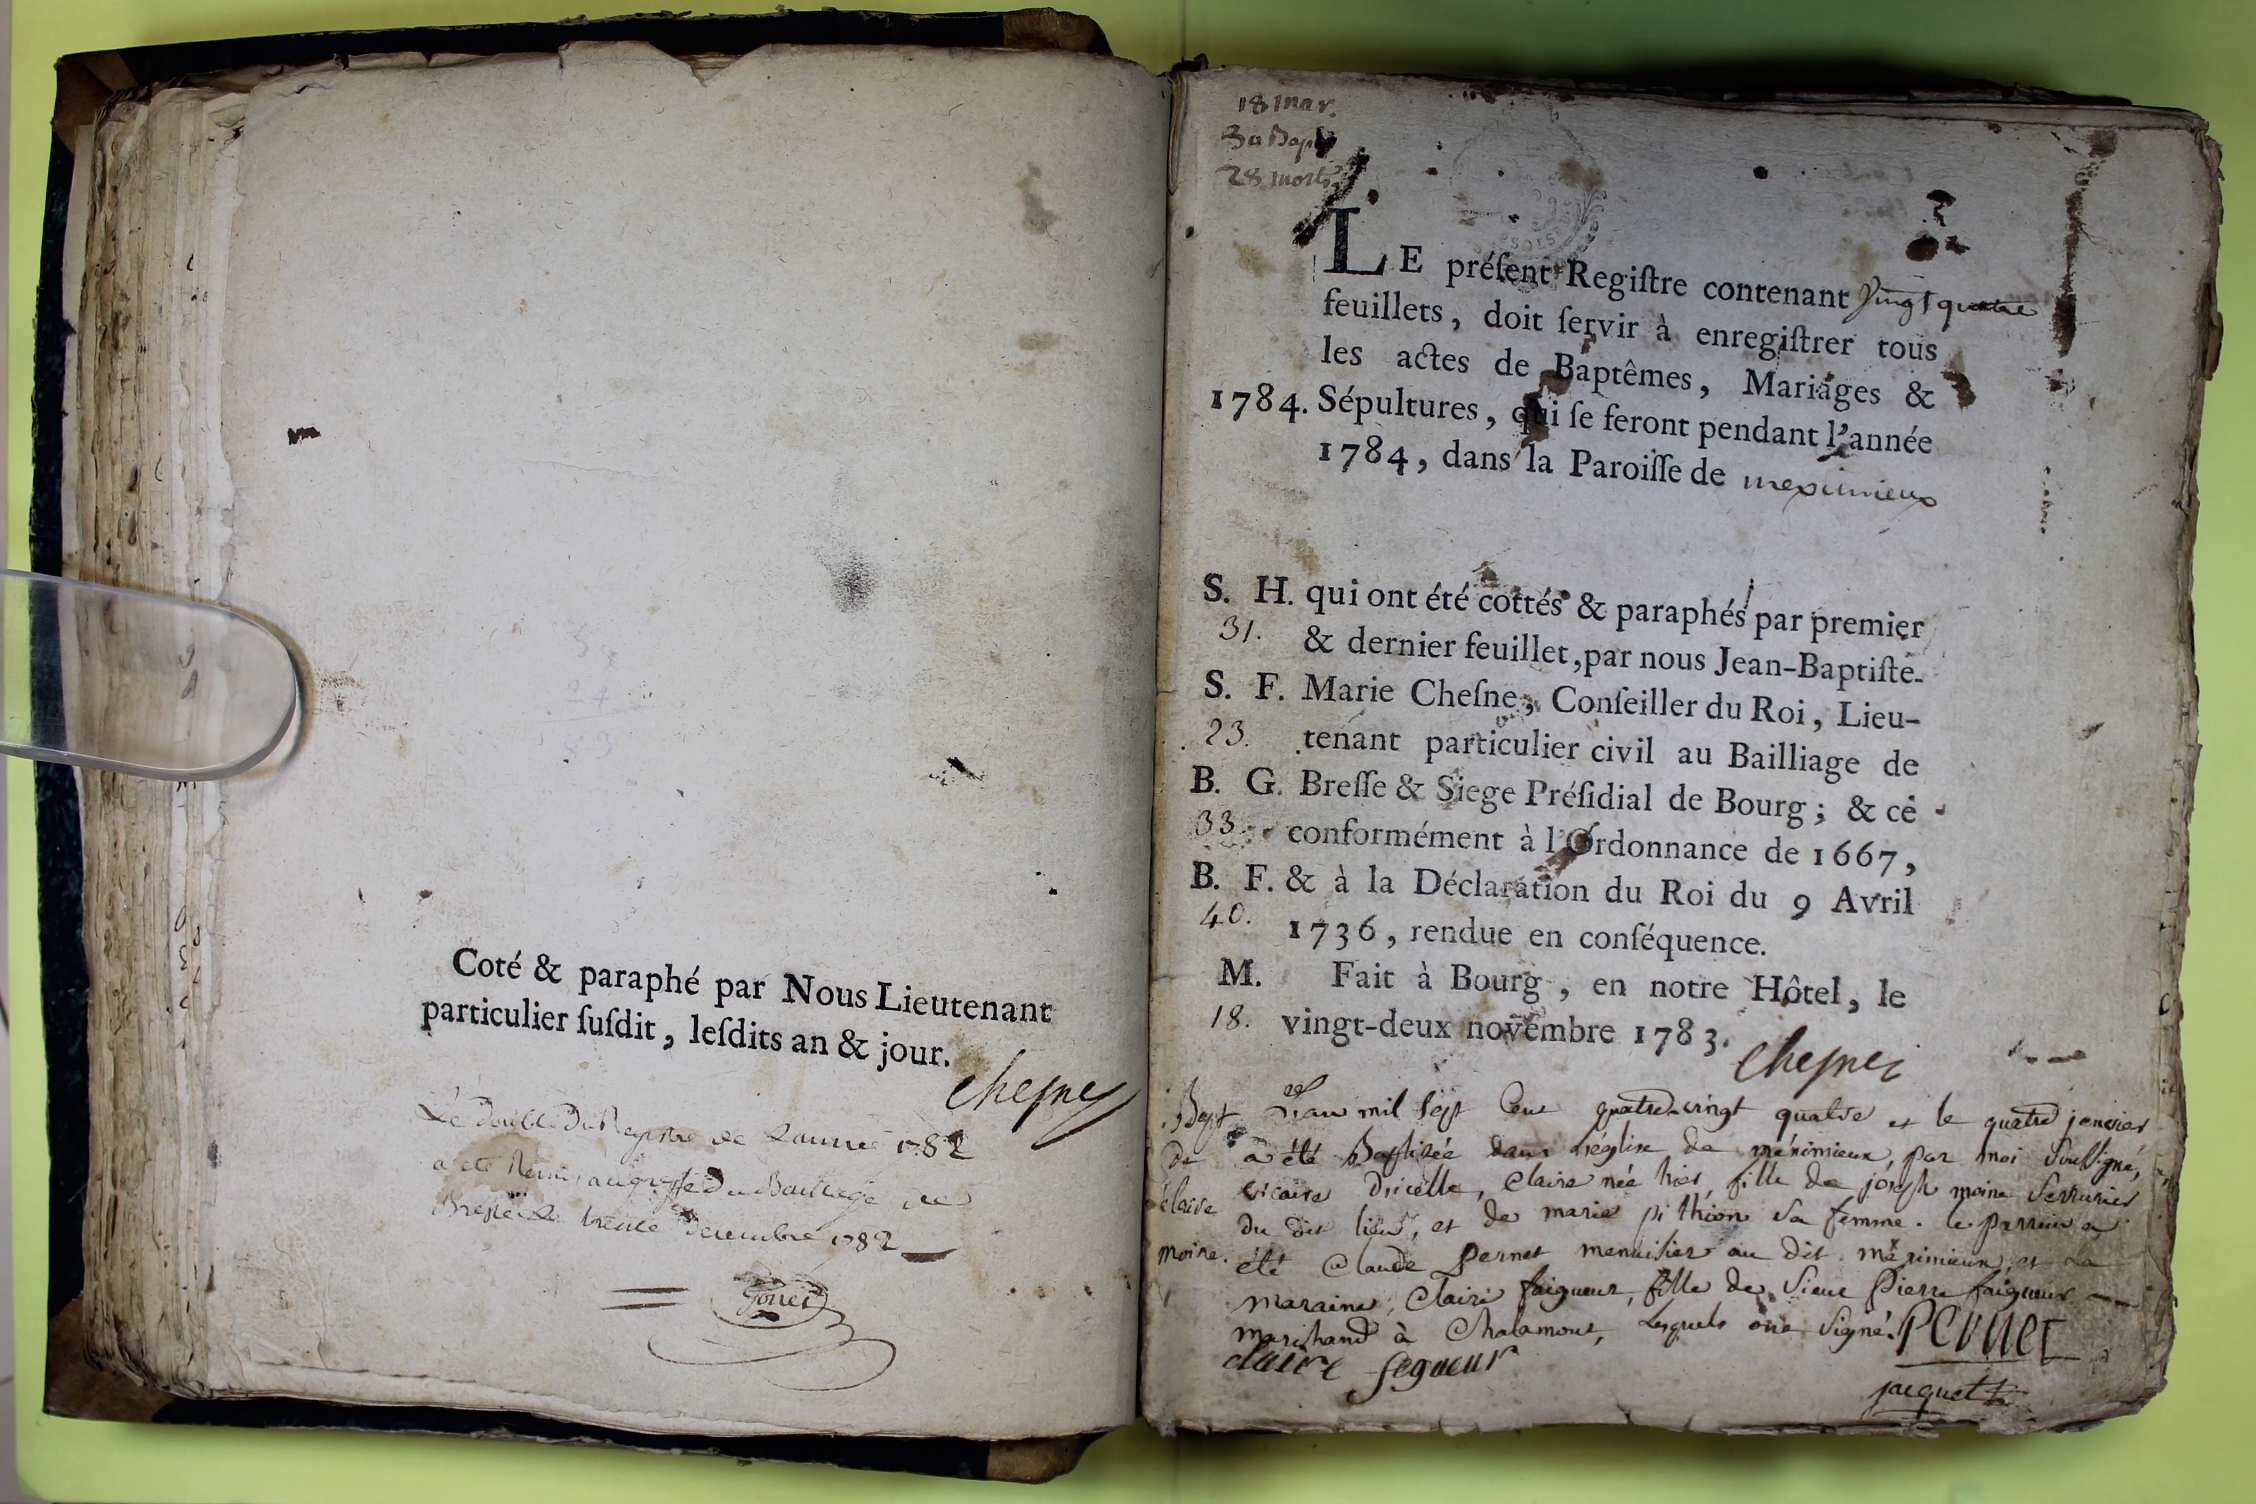 Coté & paraphé par Nous Lieutenant
particulier ſuſdit, leſdits an & jour.
Cheſne
Le double du Regiſtre de l'année 1782
a été Remis au greffe du Bailliage de
Breſſe le trente decembre 1782
18 mar.
30 Bapt
28 morts
LE préſent Regiſtre contenant vingt quatre
feuillets, doit ſervir à enregiſtrer tous
les actes de Baptêmes, Mariages &
1784. Sépultures, qui ſe feront pendant l'année
1784, dans la Paroiſſe de meximieux
S. H. qui ont été cottés & paraphés par premier
31. & dernier feuillet, par nous Jean-Baptiſte-
S. F. Marie Cheſne, Conſeiller du Roi, Lieu-
23. tenant particulier civil au Bailliage de
B. G. Breſſe & Siege Préſidial de Bourg; & ce
33. conformément à l'Ordonnance de 1667,
B. F. & à la Déclaration du Roi du 9 Avril
40. 1736, rendue en conſéquence.
M. Fait à Bourg, en notre Hôtel, le
18. vingt-deux novembre 1783.
Cheſne
Bapt L'an mil sept cent quatre-vingt quatre et le quatre janvier
de a été Baptisée dans l'église de méximieux, par moi soussigné,
claire vicaire d'icelle, Claire née hier, fille de joseph moine Serrurier
du dit lieu, et de marie pithion sa femme. le parrein a
moine. été Claude Pernet menuisier au dit méximieux, et la
maraine, Claire faigueur, fille de Sieur Pierre faigueur
marchand à Chalamont, lesquels ont signé. Pernet
claire fegueur
jacquet